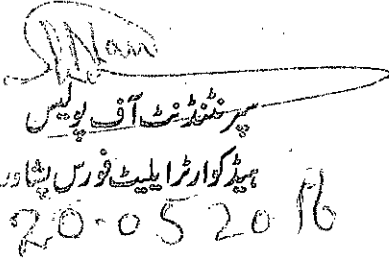 سپرنٹنڈنٹ آف پولیس
ہیڈکوارٹرز ایلیٹ فورس پشاور
20-05 2016